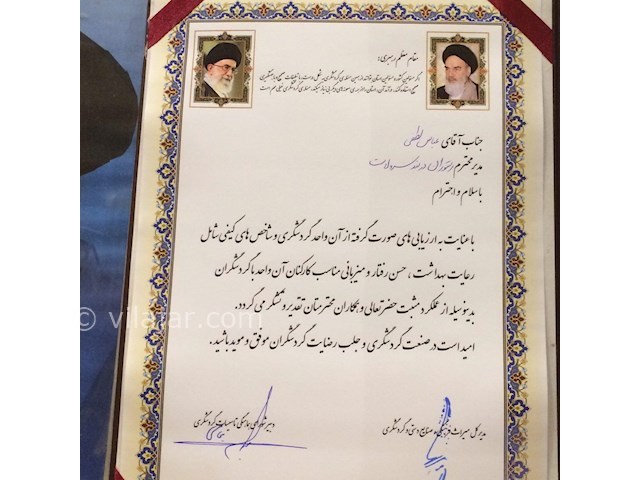 مقام معظم رهبری:
جناب آقای عباس لطفی
مدیر محترم رستوران
با سلام و احترام
با عنایت به ارزیابی های صورت گرفته از آن واحد گردشگری و شاخص های کیفی شامل
رعایت بهداشت ، حسن رفتار و میزبانی مناسب کارکنان آن واحد با گردشگران
بدینوسیله از عملکرد مثبت حضرتعالی و همکاران محترمتان تقدیر و تشکر می گردد.
امید است در صنعت گردشگری و جلب رضایت گردشگران موفق و موید باشید.
مدیر کل میراث فرهنگی، صنایع دستی و گردشگری
دبیر شورای هماهنگی تاسیسات گردشگری
© vilajar.com